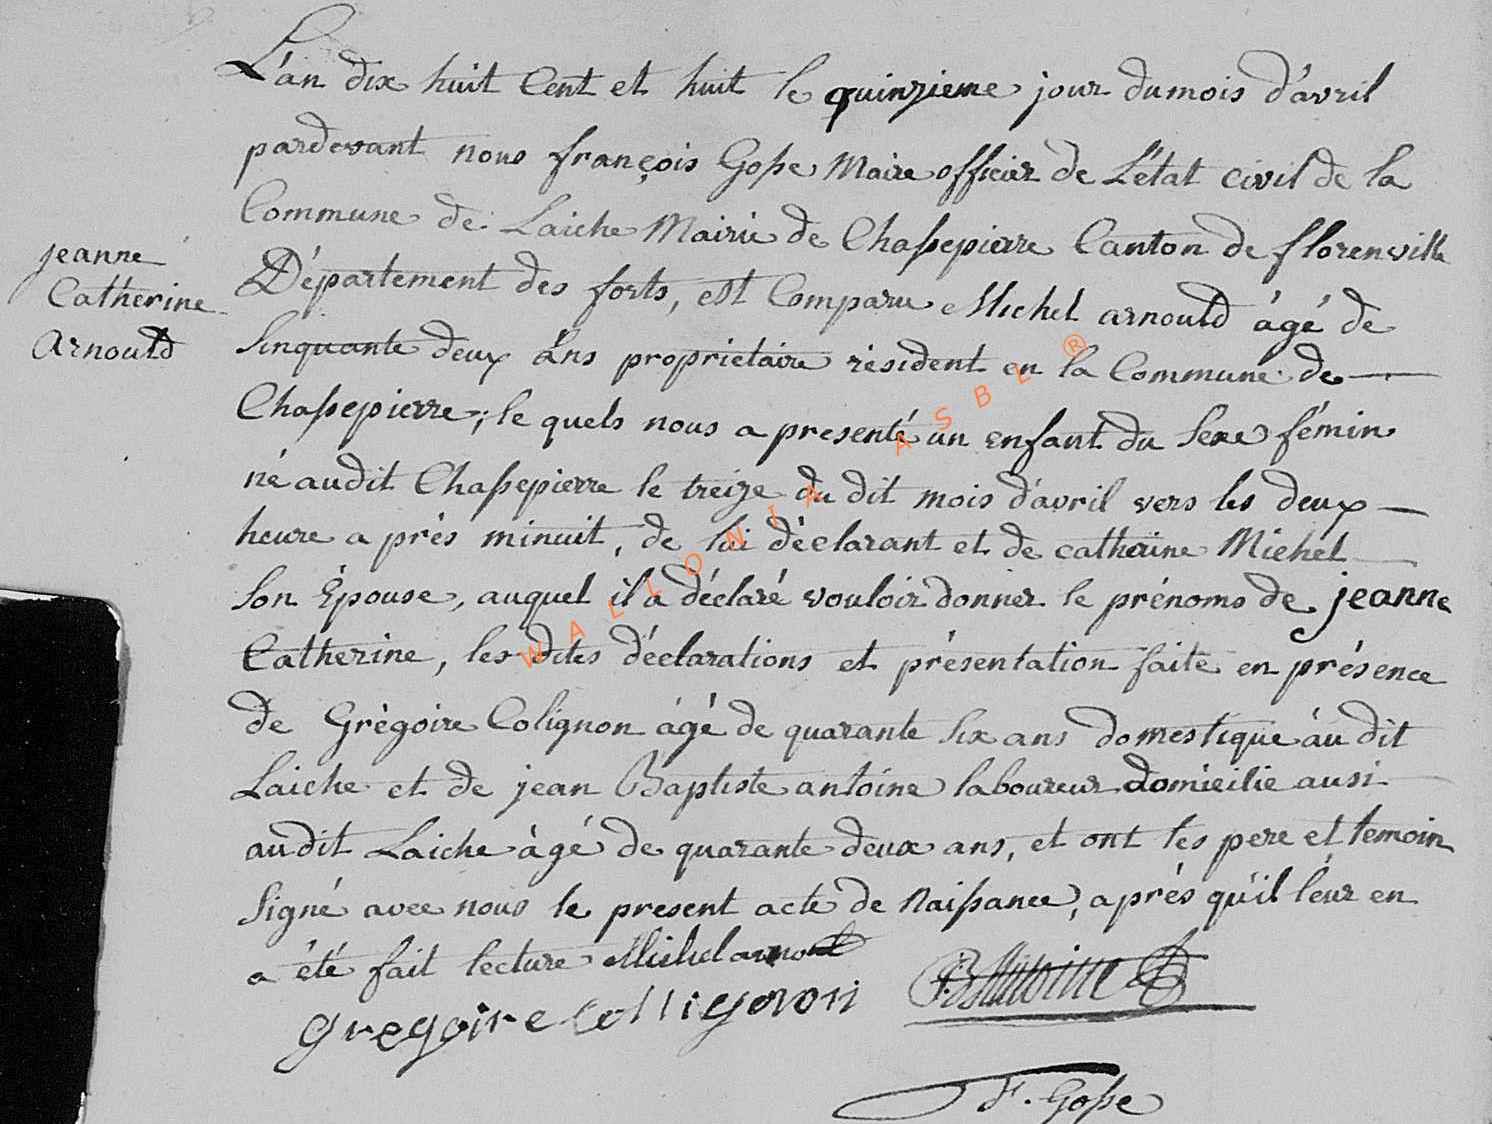 L'an dix huit Cent et huit le quinzieme jour du mois d'avril
pardevant nous françois Gosse Maire officier de L'état civil de la
Commune de Laiche Mairie de Chassepierre Canton de florenville
jeanne
Catherine
arnould
Département des forts, est Comparu Michel arnould âgé de
Sinquante deux ans proprietaire résident en la Commune de
Chassepierre, le quels nous a presenté un enfant du Sexe fémin
né audit Chassepierre le treize du dit mois d'avril vers les deux
heure a près minuit, de lui déclarant et de catherine Michel
Son Épouse, auquel il a déclaré vouloir donner le prénoms de jeanne
Catherine, les dites déclarations et présentation faite en présence
de Grègoire Colignon âgé de quarante Six ans domestique audit
Laiche et de jean Baptiste antoine laboureur domicilie ausi
audit Laiche âgé de quarante deux ans, et ont les pere et temoin
Signé avec nous le present acte de Naissance, après qu'il leur en
a été fait lecture Michel arnould
gregoire collignon
JB Antoine
F. Gosse
WALLONIA ASBL ®